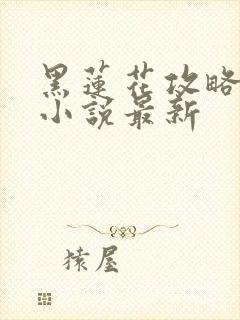 黑蓮花攻略
小說最新
猿屋